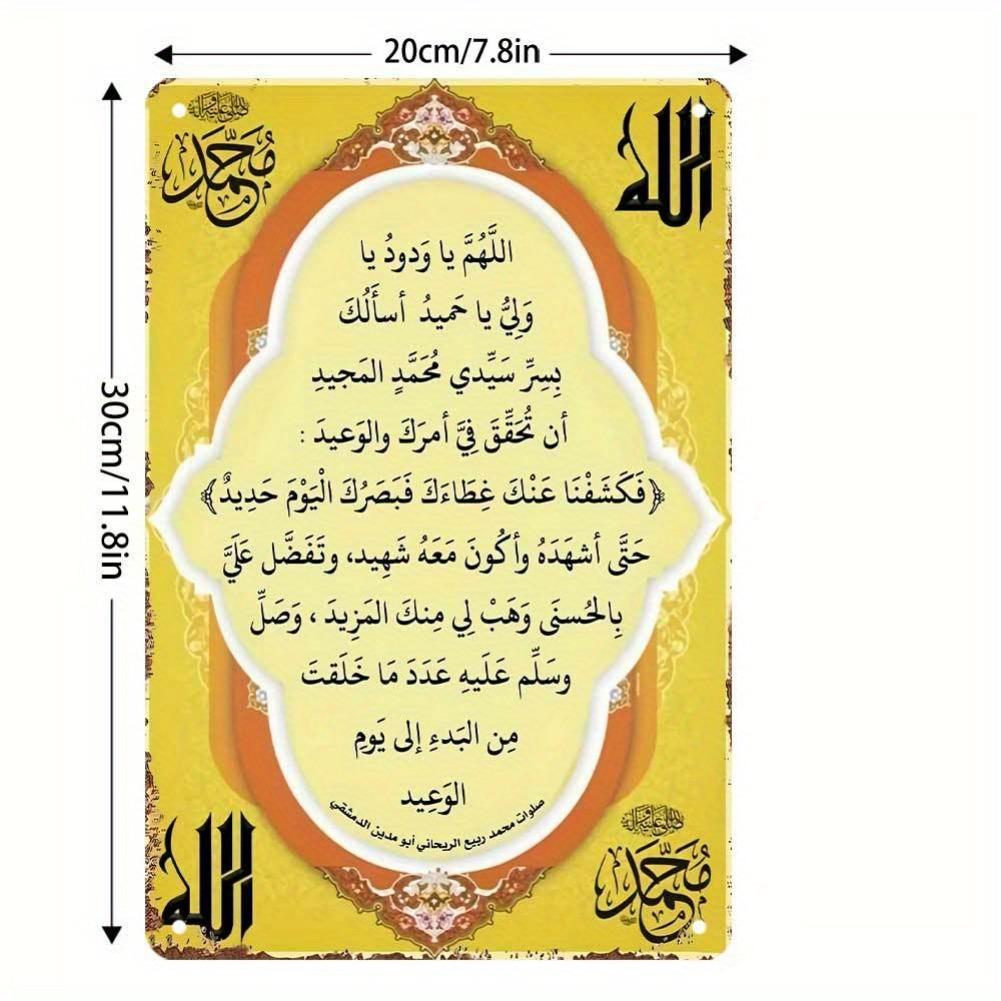 20cm/7.8in
30cm/11.8in
صلى الله عليه وآله
محمد
الله
اللَّهُمَّ يا وَدودُ يا
وَلِيُّ يا حَميدُ أسأَلُكَ
بِسِرِّ سَيِّدي مُحَمَّدٍ المَجيدِ
أن تُحَقِّقَ فِيَّ أمرَكَ والوَعيدَ :
﴿فَكَشَفْنَا عَنْكَ غِطَاءَكَ فَبَصَرُكَ الْيَوْمَ حَدِيدٌ﴾
حَتَّى أشهَدَهُ وأكُونَ مَعَهُ شَهِيد، وتَفَضَّل عَلَيَّ
بِالحُسنَى وَهَبْ لِي مِنكَ المَزِيدَ ، وَصَلِّ
وسَلِّم عَلَيهِ عَدَدَ مَا خَلَقتَ
مِن البَدءِ إلى يَومِ
الوَعِيد
صلوات محمد ربيع الريحاني أبو مدين الدمشقي
الله
صلى الله عليه وآله
محمد